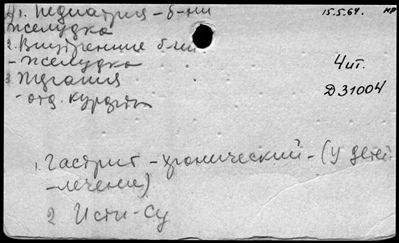 1. Педиатрия - б-ни
желудка
2. Внутренние б-ни
- желудка
3. Терапия
- отд. курорты
15.5.64. нр
4 ит.
Д31004
1. Гастрит - хронический - (у детей
- лечение)
2 Исти-Су